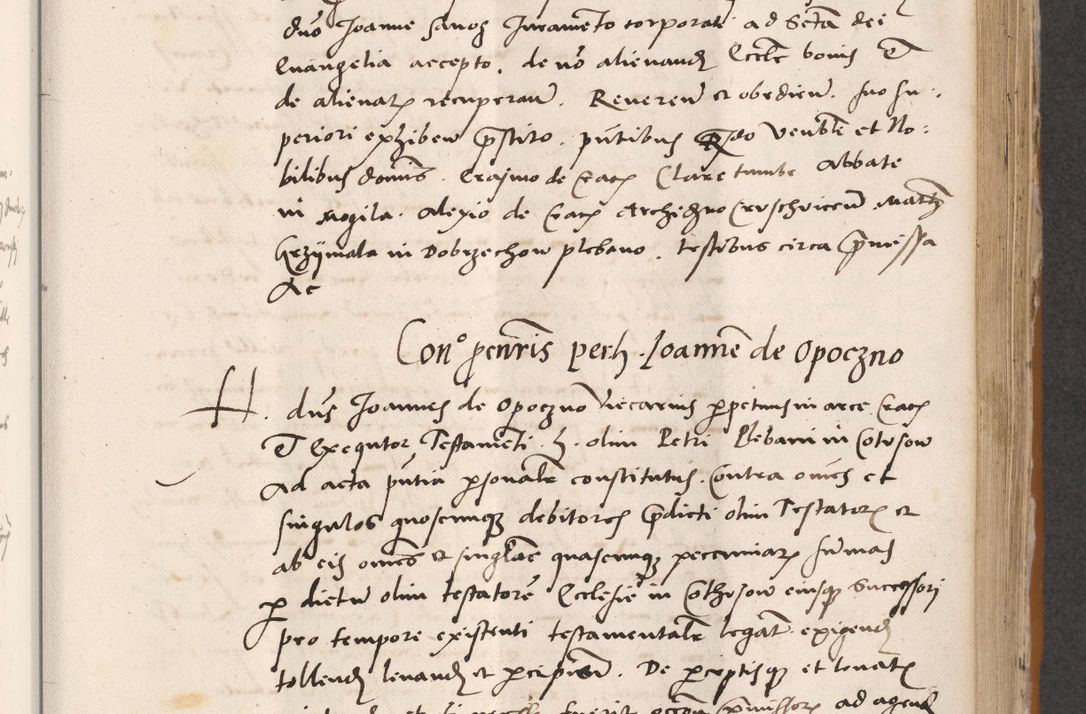 duō Joanne sanoȝ Iuramēto corporali ad Scta dei
Euangelia accepto . de nō alienandȝ Eccle bonis et
de alienatȝ recuperand . Reuerend et obediend . suo su:
periori exhibend p̄stito . pntibus Rdo Venbli et No:
bilibus domis . Erasmo de Crac Clare tumbe Abbate
in Mogila . Alexio de Crac Archidno
Grzymala in Dobrzechow plebano . testibus circa p̄missa
Ac
Con° gen̄ris per h . Joannē de Opoczno
H . dnus Joannes de Opoczno Vicarius perpetuus in arce Crac
Et Exequtor Testamēti . h . olim Petri Plebani in Cotusow
Ad acta pntia personalr constitutus . Contra omēs et
singulos quoscunqȝ debitores p̄dicti olim Testatorȝ et
ab eis omēs et singulas quascunqȝ pecuniarȝ summas
per dictum olim testatorē Ecclesie in Cothusow eiusqȝ Successori
pro tempore existenti testamentalr legatȝ exigendȝ
tollendȝ leuandȝ et percipiendȝ . De perceptisqȝ et leuatȝ